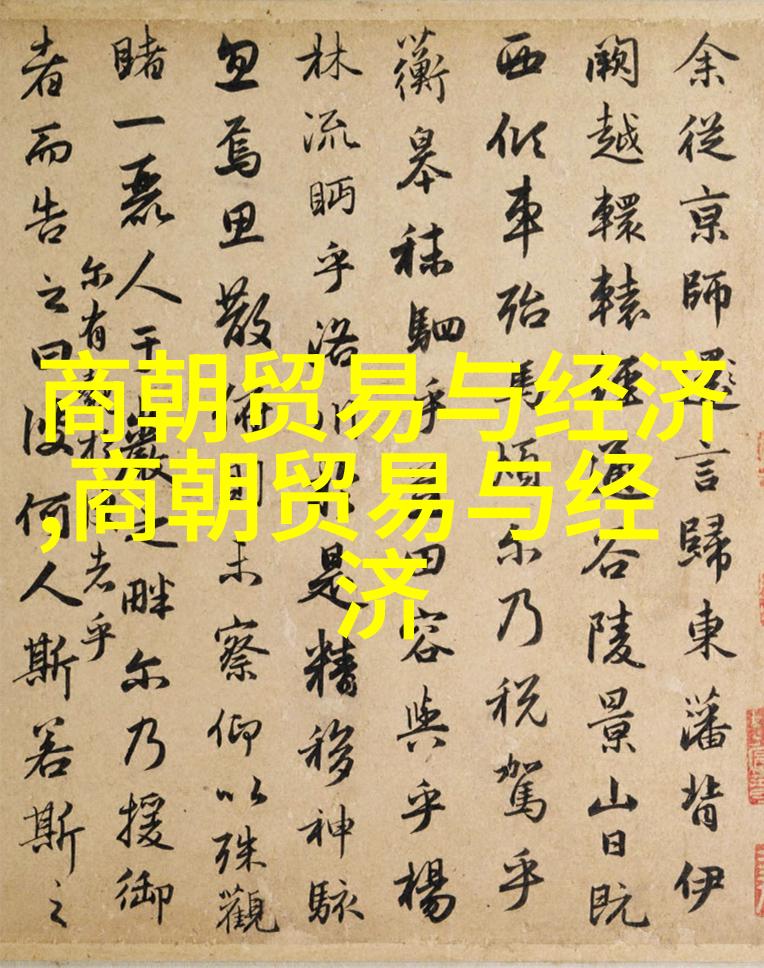 余從京師還言歸東藩背伊
闕越轘轅經通谷陵景山日既
西傾車殆馬煩尔乃税駕乎
蘅皋秣駟乎芝田容與乎楊
林流眄乎洛川於是精移神駭
忽焉思散俯則未察仰以殊觀
睹一麗人于巖之畔尔乃援御
尔有覿於彼者乎
者而告之曰彼何人斯若斯之
商朝贸易与经济
,商朝贸易与经
济